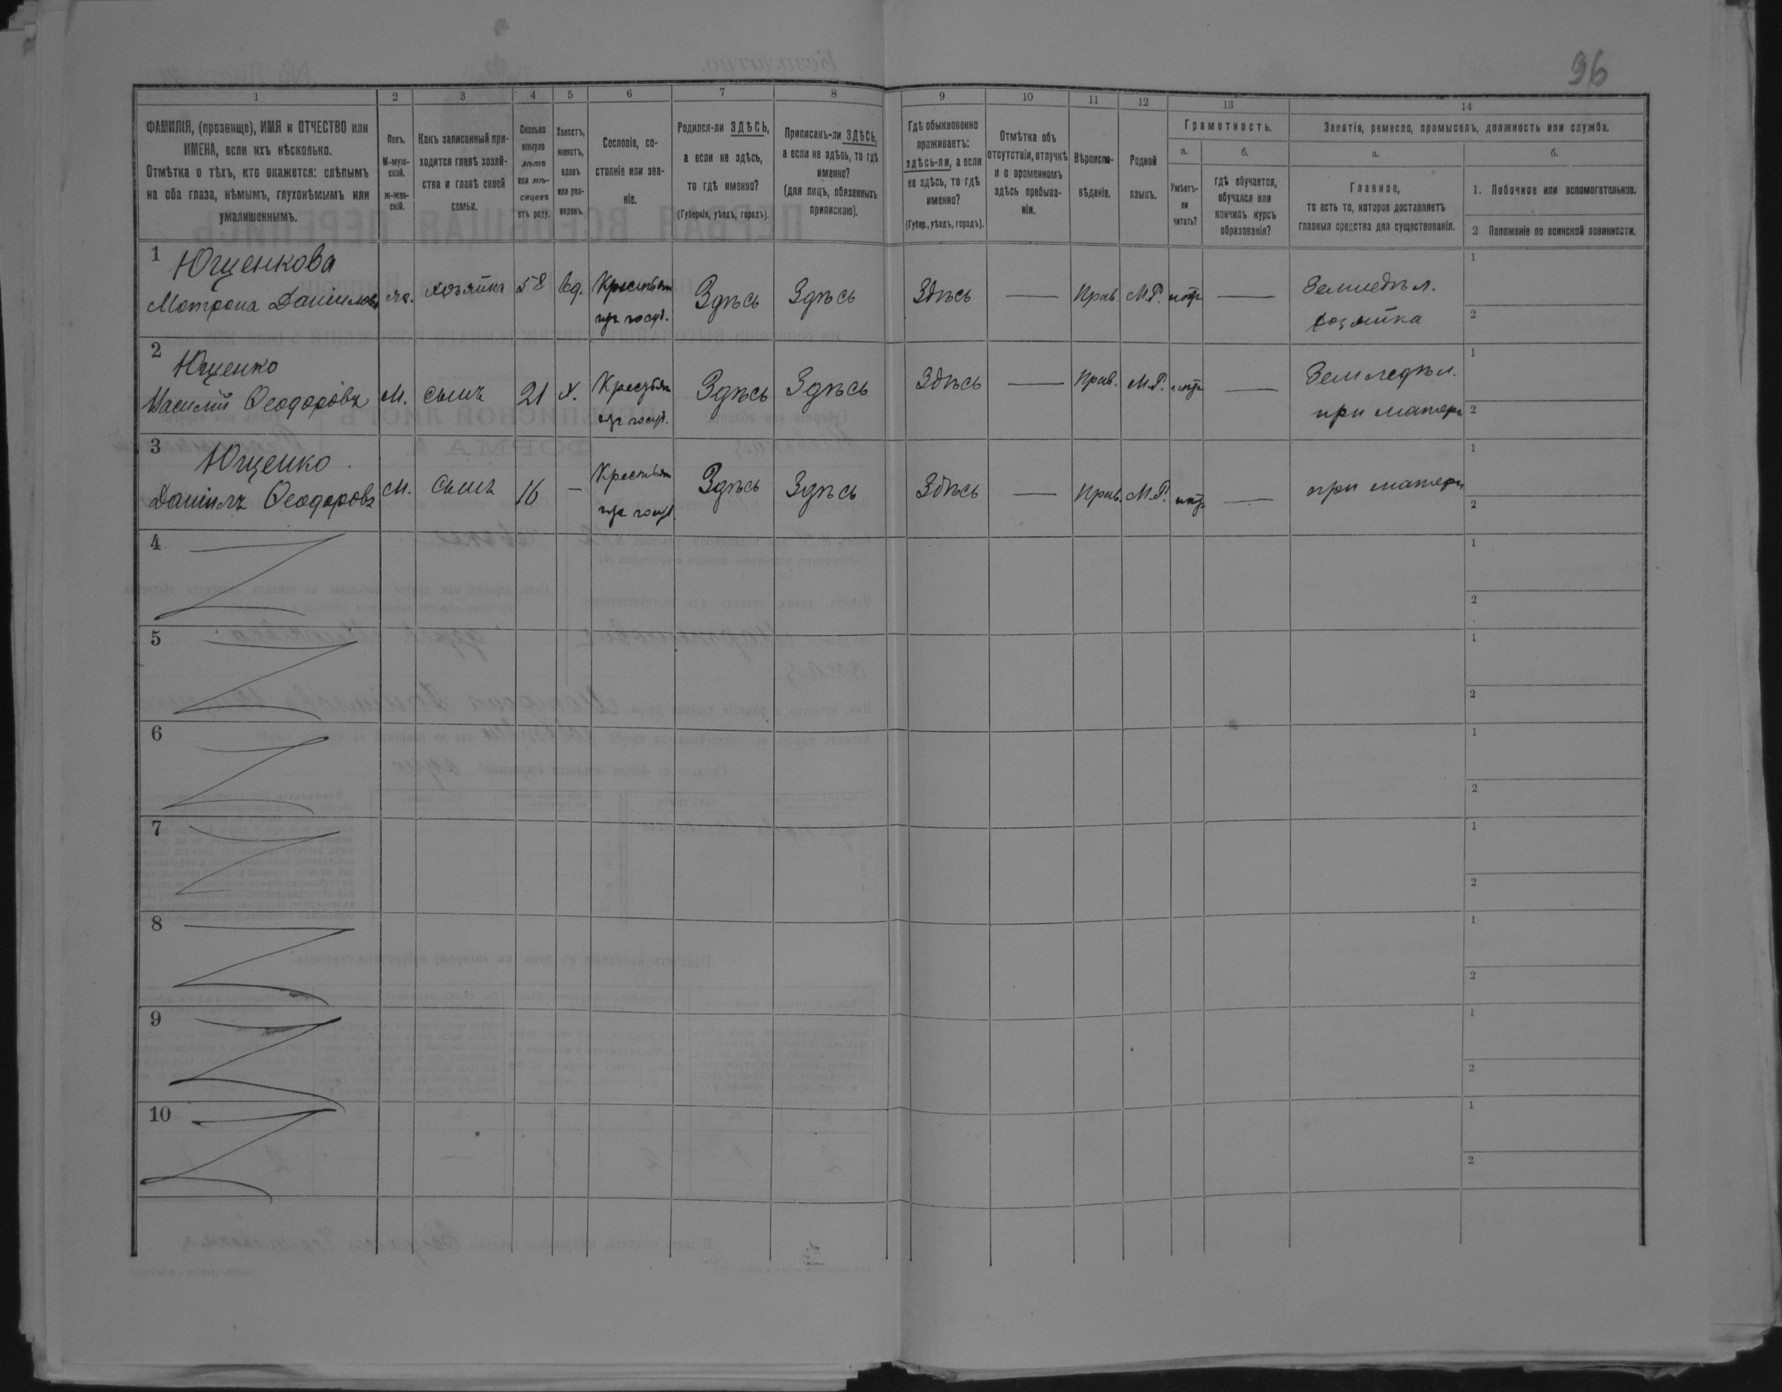 96
1 2 3 4 5 6 7 8 9 10 11 12 13 14
ФАМИЛІЯ, (прозвище), ИМЯ и ОТЧЕСТВО или
ИМЕНА, если ихъ нѣсколько.
Отмѣтка о тѣхъ, кто окажется: слѣпымъ
на оба глаза, нѣмымъ, глухонѣмымъ или
умалишеннымъ.
Полъ.
М-муж-
ской.
ж-жен-
скій.
Какъ записанный при-
ходится главѣ хозяй-
ства и главѣ своей
семьи.
Сколько
минуло
лѣтъ
или мѣ-
сяцевъ
отъ роду.
Холостъ,
женатъ,
вдовъ
или раз-
веденъ.
Сословіе, со-
стояніе или зва-
ніе.
Родился-ли ЗДѢСЬ,
а если не здѣсь,
то гдѣ именно?
(Губернія, уѣздъ, городъ).
Приписанъ-ли ЗДѢСЬ,
а если не здѣсь, то гдѣ
именно?
(для лицъ, обязанныхъ
припискою).
Гдѣ обыкновенно
проживаетъ:
здѣсь-ли, а если
не здѣсь, то гдѣ
именно?
(Губер., уѣздъ, городъ).
Отмѣтка объ
отсутствіи, отлучкѣ
и о временномъ
здѣсь пребыва-
ніи.
Вѣроиспо-
вѣданіе.
Родной
языкъ.
Грамотность.
а.
Умѣетъ-
ли
читать?
б.
гдѣ обучается,
обучался или
кончилъ курсъ
образованія?
Занятіе, ремесло, промыселъ, должность или служба.
а.
Главное,
то есть то, которое доставляетъ
главныя средства для существованія.
б.
1. Побочное или вспомогательное.
2 Положеніе по воинской повинности.
1 Ющенкова
Матрона Данилова ж. хозяйка 58 вд. Крестьян Здѣсь Здѣсь Здѣсь — Прав. М.Р. — Земледѣл.
хозяйка
1
2
2 Ющенко
Василій Феодоровъ М. сынъ 21 х. Крестьян Здѣсь Здѣсь Здѣсь — Прав. М.Р. — Земледѣл.
при матери
1
2
3 Ющенко
Даніилъ Феодоровъ М. сынъ 16 — Крестьян Здѣсь Здѣсь Здѣсь — Прав. М.Р. — при матери
1
2
4
1
2
5
1
2
6
1
2
7
1
2
8
1
2
9
1
2
10
1
2